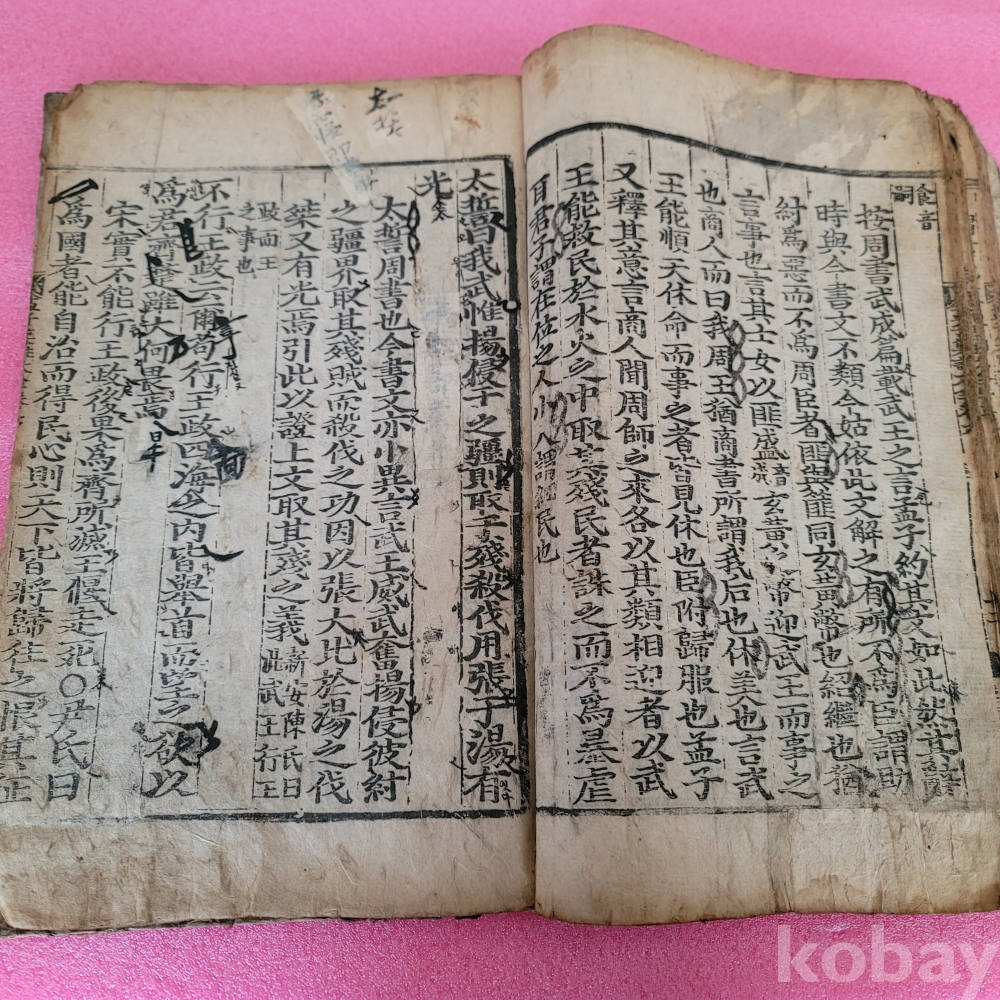 食音
嗣
按周書武成篇載武王之言孟子約其文如此然其辭
時與今書文不類今姑依此文解之有所不爲臣謂助
紂爲惡而不爲周臣者匪與篚同玄黃幣也紹繼也猶
言事也言其士女以匪盛音成玄黃之幣迎武王而事之
也商人而曰我周王猶商書所謂我后也休美也言武
王能順天休命而事之者皆見休也臣附歸服也孟子
又釋其意言商人聞周師之來各以其類相迎者以武
王能救民於水火之中取其殘民者誅之而不爲暴虐
耳君子謂在位之人小人謂細民也
太誓曰我武惟揚侵于之疆則取于殘殺伐用張于湯有
光
太誓周書也今書文亦小異言武王威武奮揚侵彼紂
之疆界取其殘賊而殺伐之功因以張大比於湯之伐
桀又有光焉引此以證上文取其殘之義新安陳氏曰此武王行王
政而王之事也
不行王政云爾苟行王政四海之內皆擧首而望之欲以
爲君齊楚雖大何畏焉
宋實不能行王政後果爲齊所滅王偃走死○尹氏曰
爲國者能自治而得民心則天下皆將歸往之恨其征
kobay